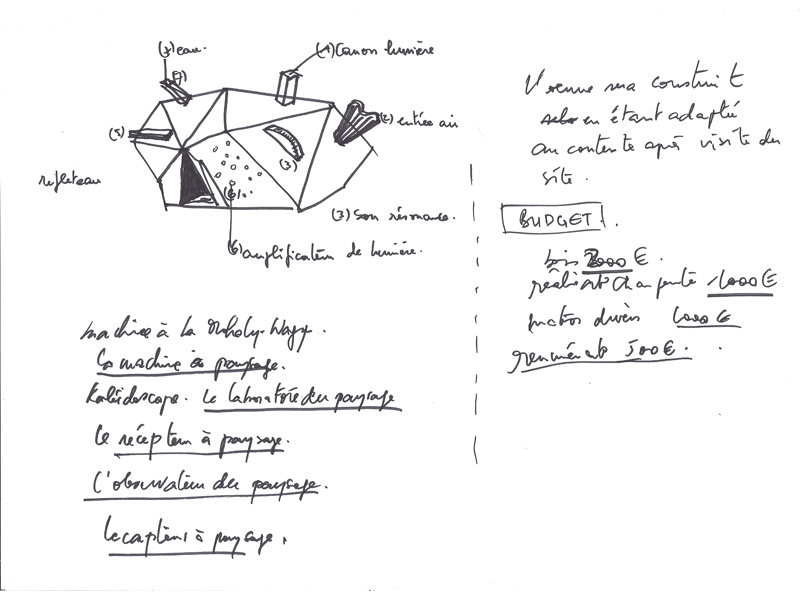 (7) eau.
(1) Canon lumière
(7)
(5)
(2) entrée air
(3)
(6)
(3) Son résonance.
(6) amplificateur de lumière.
machine à la Moholy-Nagy.
La machine à paysage.
Kaléidoscope. Le laboratoire du paysage
le récepteur à paysage.
L'observateur du paysage.
Le capteur à paysage.
sera construit
en étant adapté
au contexte après visite du
site.
BUDGET.
bois 2000 €.
charpente 1000 €
divers 1000 €
500 €.